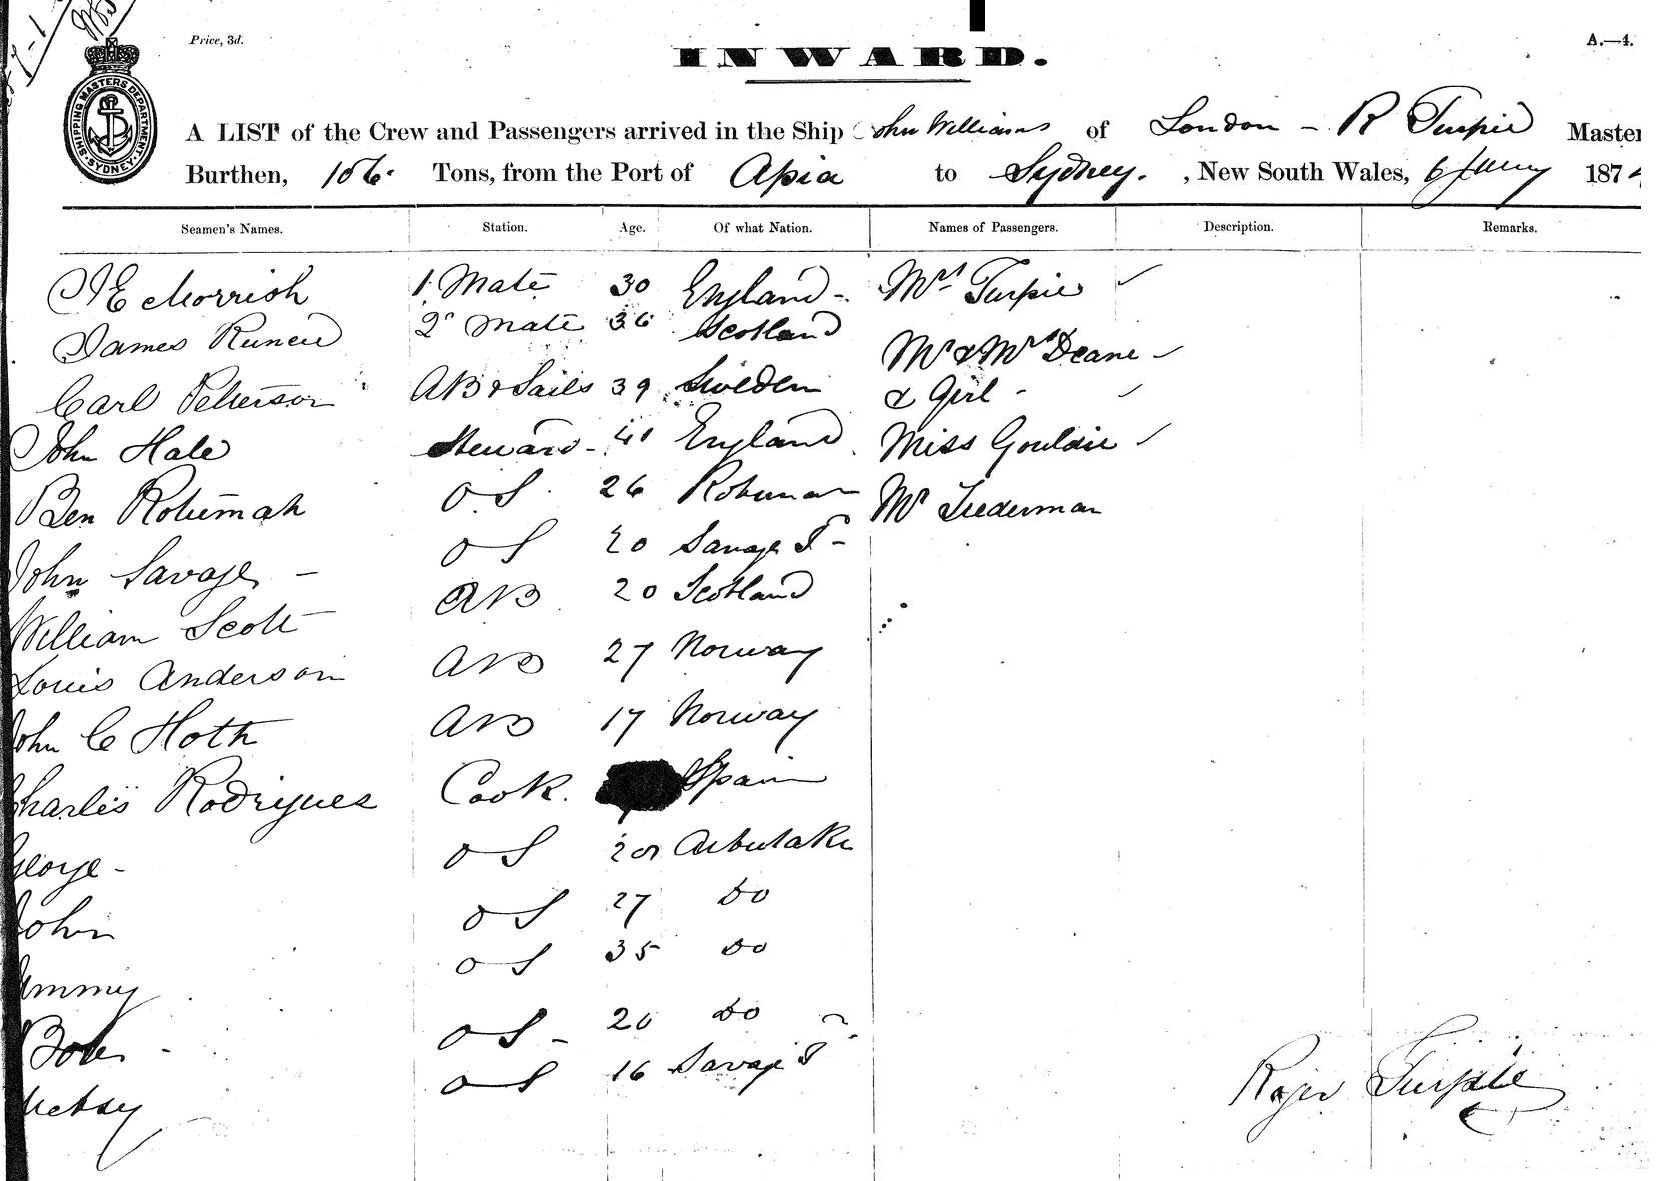 Price, 3d.
INWARD.
A.—4.
SHIPPING MASTERS DEPARTMENT. SYDNEY
A LIST of the Crew and Passengers arrived in the Ship John Williams of London - R Turpie Master
Burthen, 186 Tons, from the Port of Apia to Sydney. , New South Wales, 6 Jany 187
Seamen's Names. Station. Age. Of what Nation. Names of Passengers. Description. Remarks.
E Morrish 1 Mate 30 England - Mrs Turpie
James 2d Mate 36 Scotland
Mr & Mrs Deane
Carl Peterson AB & Sails 39 Sweden & Girl -
John Hale Steward - 41 England Miss Gouldie
Ben Rotumah O S 26 Rotumah Mr Tiederman
John Savage - O S 20 Savage I -
William Scott AB 20 Scotland
Louis Anderson AB 27 Norway
John C Hoth AB 17 Norway
Charles Rodrigues Cook. Spain
George - O S 20 
John O S 27 Do
O S 35 Do
Bob - O S - 20 Do
O S 16 Savage I
Roger Turpie